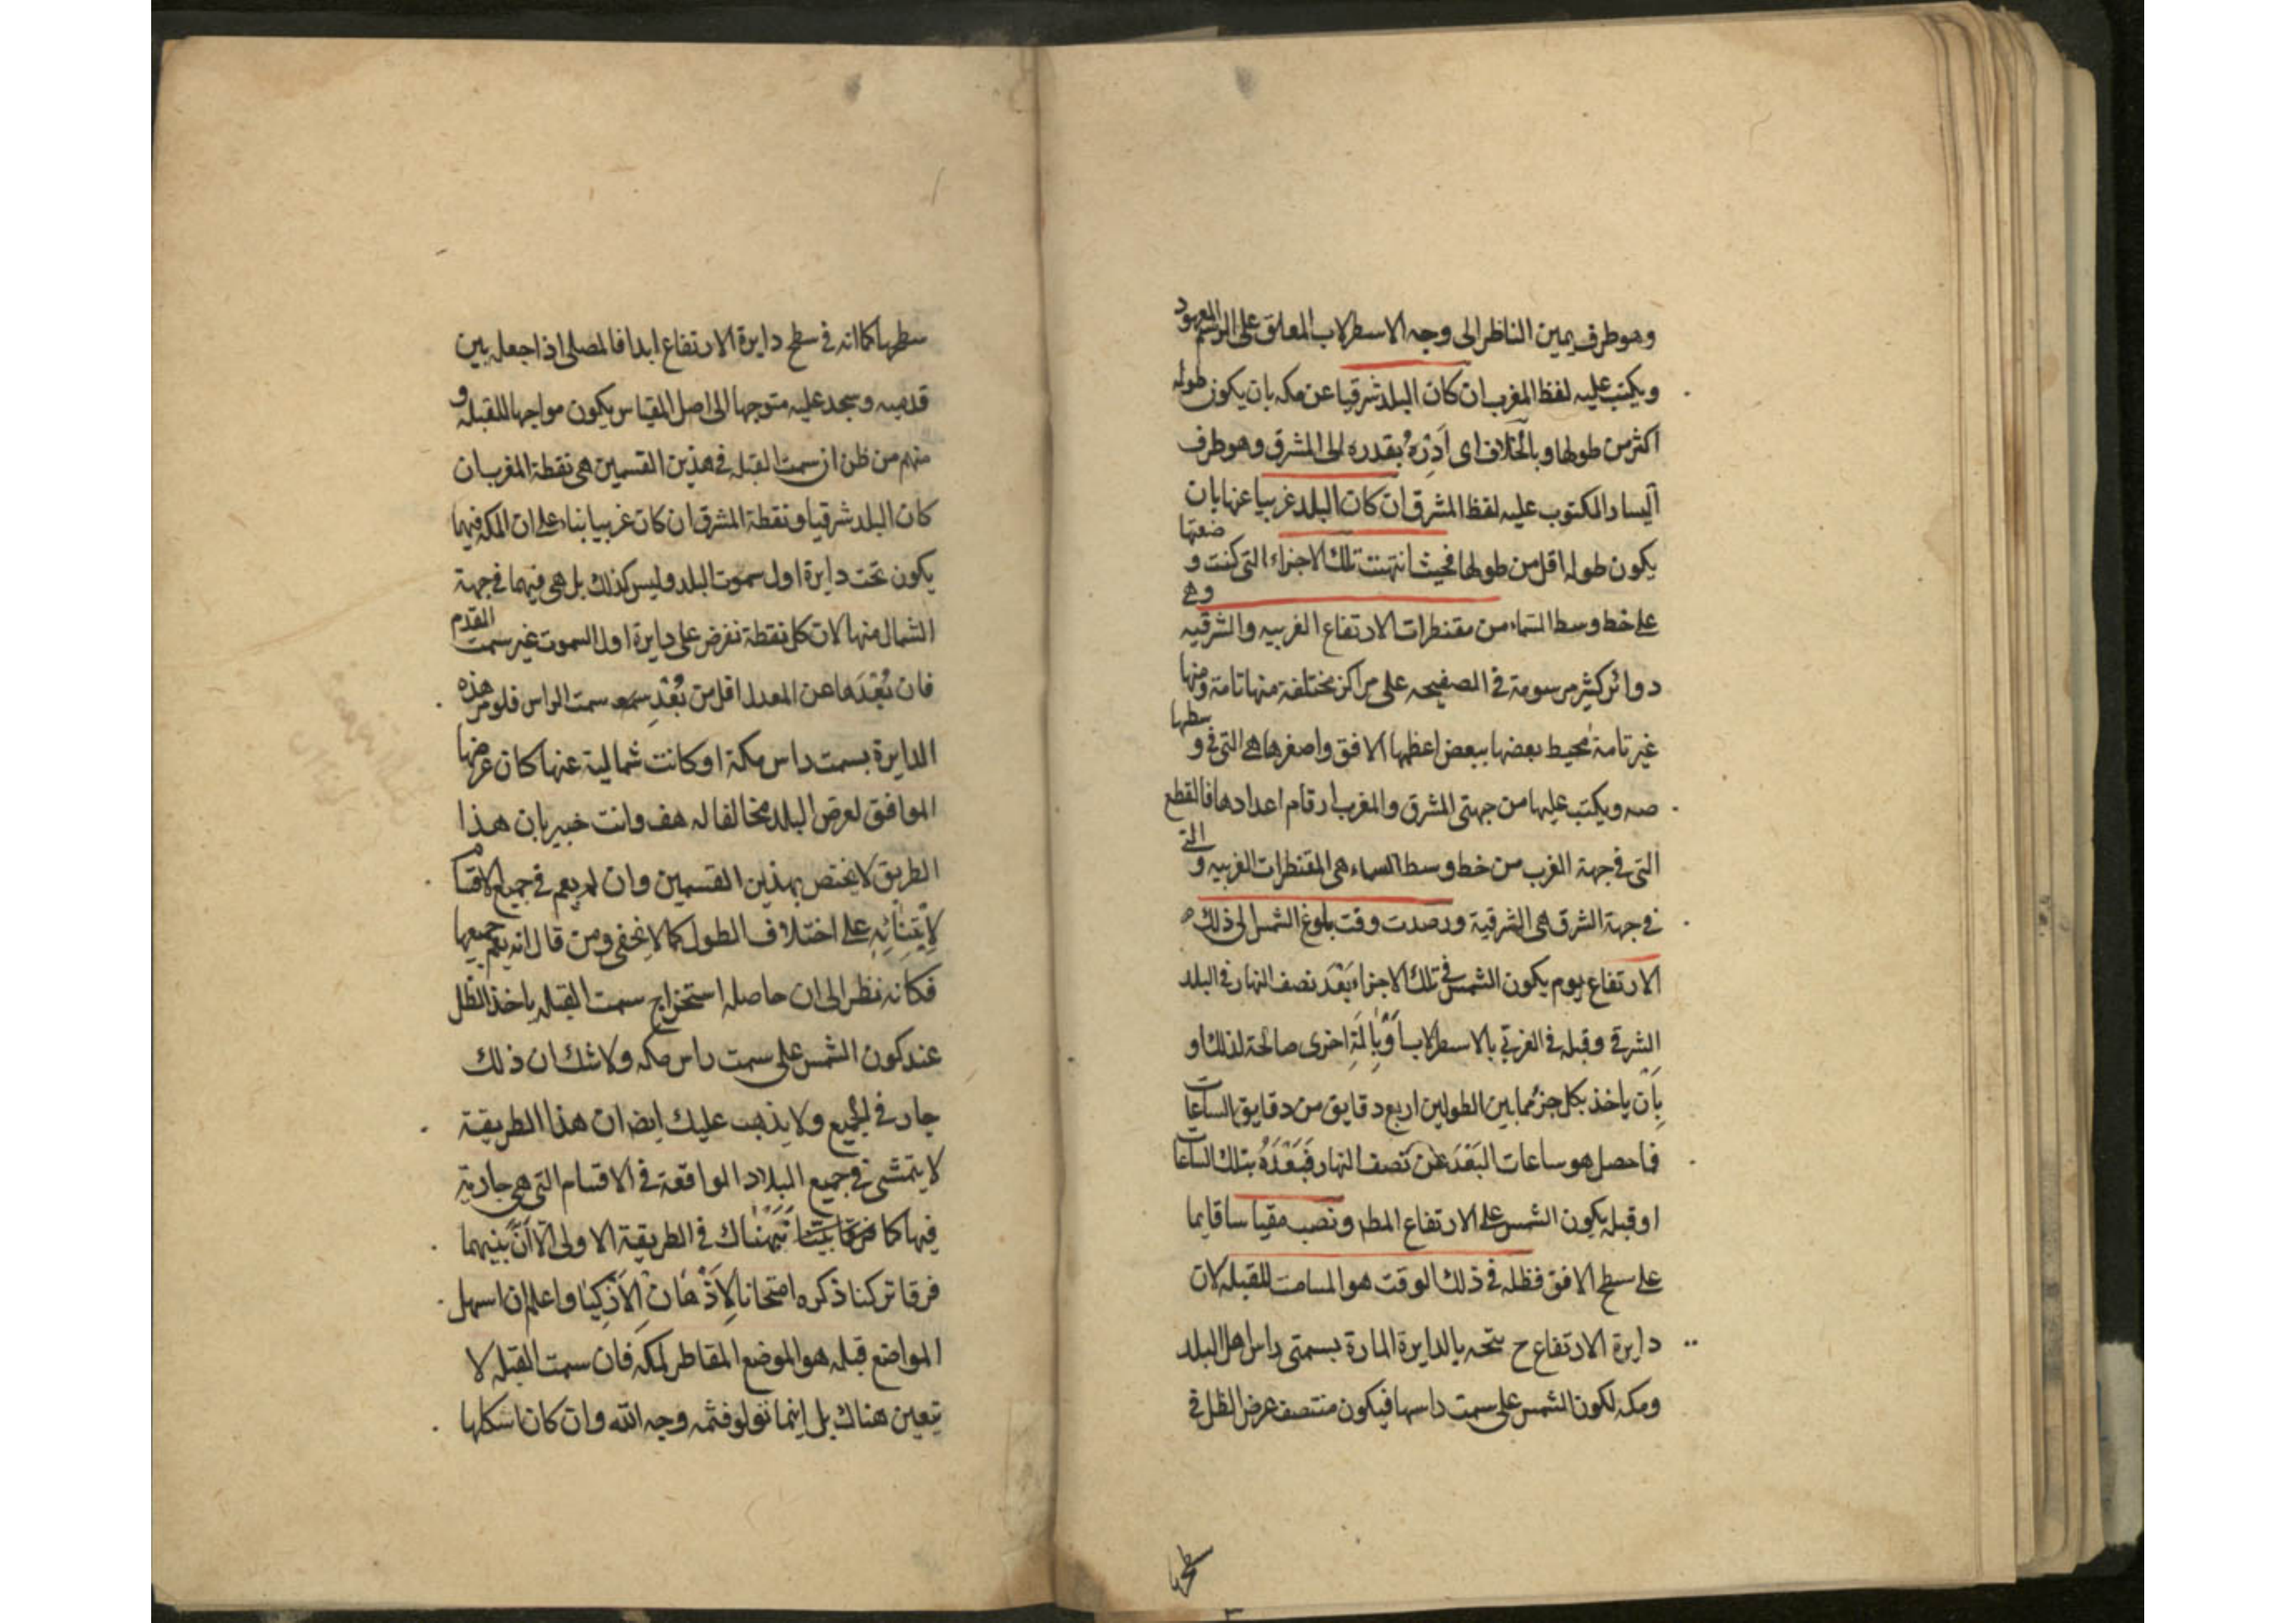 وهو طرف يمين الناظر الى وجه الاسطرلاب المعلق على الرسم المعهود
ويكتب عليه لفظ المغرب ان كان البلد شرقيا عن مكه بان يكون طوله
اكثر من طولها وبالخلاف اى ادره بقدره الى المشرق وهو طرف
اليسار المكتوب عليه لفظ المشرق ان كان البلد غربيا عنها بان
يكون طوله اقل من طولها فحيث انتهت تلك الاجزاء التى كنت وضعتها
على خط وسط السماء من مقنطرات الارتفاع الغربيه والشرقيه وهى
دوائر كثير مرسومة فى الصفيحه على مراكز مختلفة منها تامة ومنها
غير تامة محيط بعضها ببعض اعظمها الافق واصغرها هى التى فى وسطها
صه ويكتب عليها من جهتى المشرق والمغرب ارقام اعدادها فالقطع
التى فى جهة الغرب من خط وسط السماء هى المقنطرات الغربيه والتى
فى جهة الشرق هى الشرقية ورصدت وقت بلوغ الشمس الى ذلك
الارتفاع يوم يكون الشمس فى تلك الاجزاء بعد نصف النهار فى البلد
الشرقى وقبله فى الغربى بالاسطرلاب او بالة اخرى صالحة لذلك او
بان ياخذ بكل جزء مما بين الطولين اربع دقايق من دقايق الساعات
فما حصل هو ساعات البعد عن نصف النهار فبعده بتلك الساعات
او قبله يكون الشمس على الارتفاع المط ونصب مقياسا قايما
على سطح الافق فظله فى ذلك الوقت هو المسامت للقبله لان
دايرة الارتفاع ح يتحد بالدايرة المارة بسمتى راس اهل البلد
ومكه لكون الشمس على سمت راسها فيكون منتصف عرض الظل فى
سطحها
سطرها كما انه فى سطح دايرة الارتفاع ابدا فالمصلى اذا جعله بين
قدميه وسجد عليه متوجها الى اصل المقياس يكون مواجها للقبله و
منهم من ظن ان سمت القبله فى هذين القسمين هى نقطة المغرب ان
كان البلد شرقيا ونقطة المشرق ان كان غربيا بناء على ان المكه فيهما
يكون تحت دايرة اول سموت البلد وليس كذلك بل هى فيهما فى جهة
الشمال منها لان كل نقطة نفرض على دايرة اول السموت غير سمت القدم
فان بعدها عن المعدل اقل من بعد سمت الراس فلو مر هذه
الدايرة بسمت راس مكة او كانت شمالية عنها كان عرضها
الموافق لعرض البلد مخالفا له هف وانت خبير بان هذا
الطريق لا يختص بهذين القسمين وان لم يعم فى جميع الاقسام
لابتنائه على اختلاف الطول كما لا يخفى ومن قال انه يعم جميعها
فكانه نظر الى ان حاصله استخراج سمت القبله باخذ الظل
عند كون الشمس على سمت راس مكه ولا شك ان ذلك
جار فى الجميع ولا يذهب عليك ايضا ان هذا الطريقة
لا يتمشى فى جميع البلاد الواقعة فى الاقسام التى هى جارية
فيها كما نبهناك فى الطريقة الاولى الا ان بينهما
فرقا تركنا ذكره امتحانا لاذهان الاذكيا واعلم ان اسهل
المواضع قبله هو الموضع المقاطر لمكه فان سمت القبله لا
يتعين هناك بل اينما تولو فثمه وجه الله وان كان اشكلها